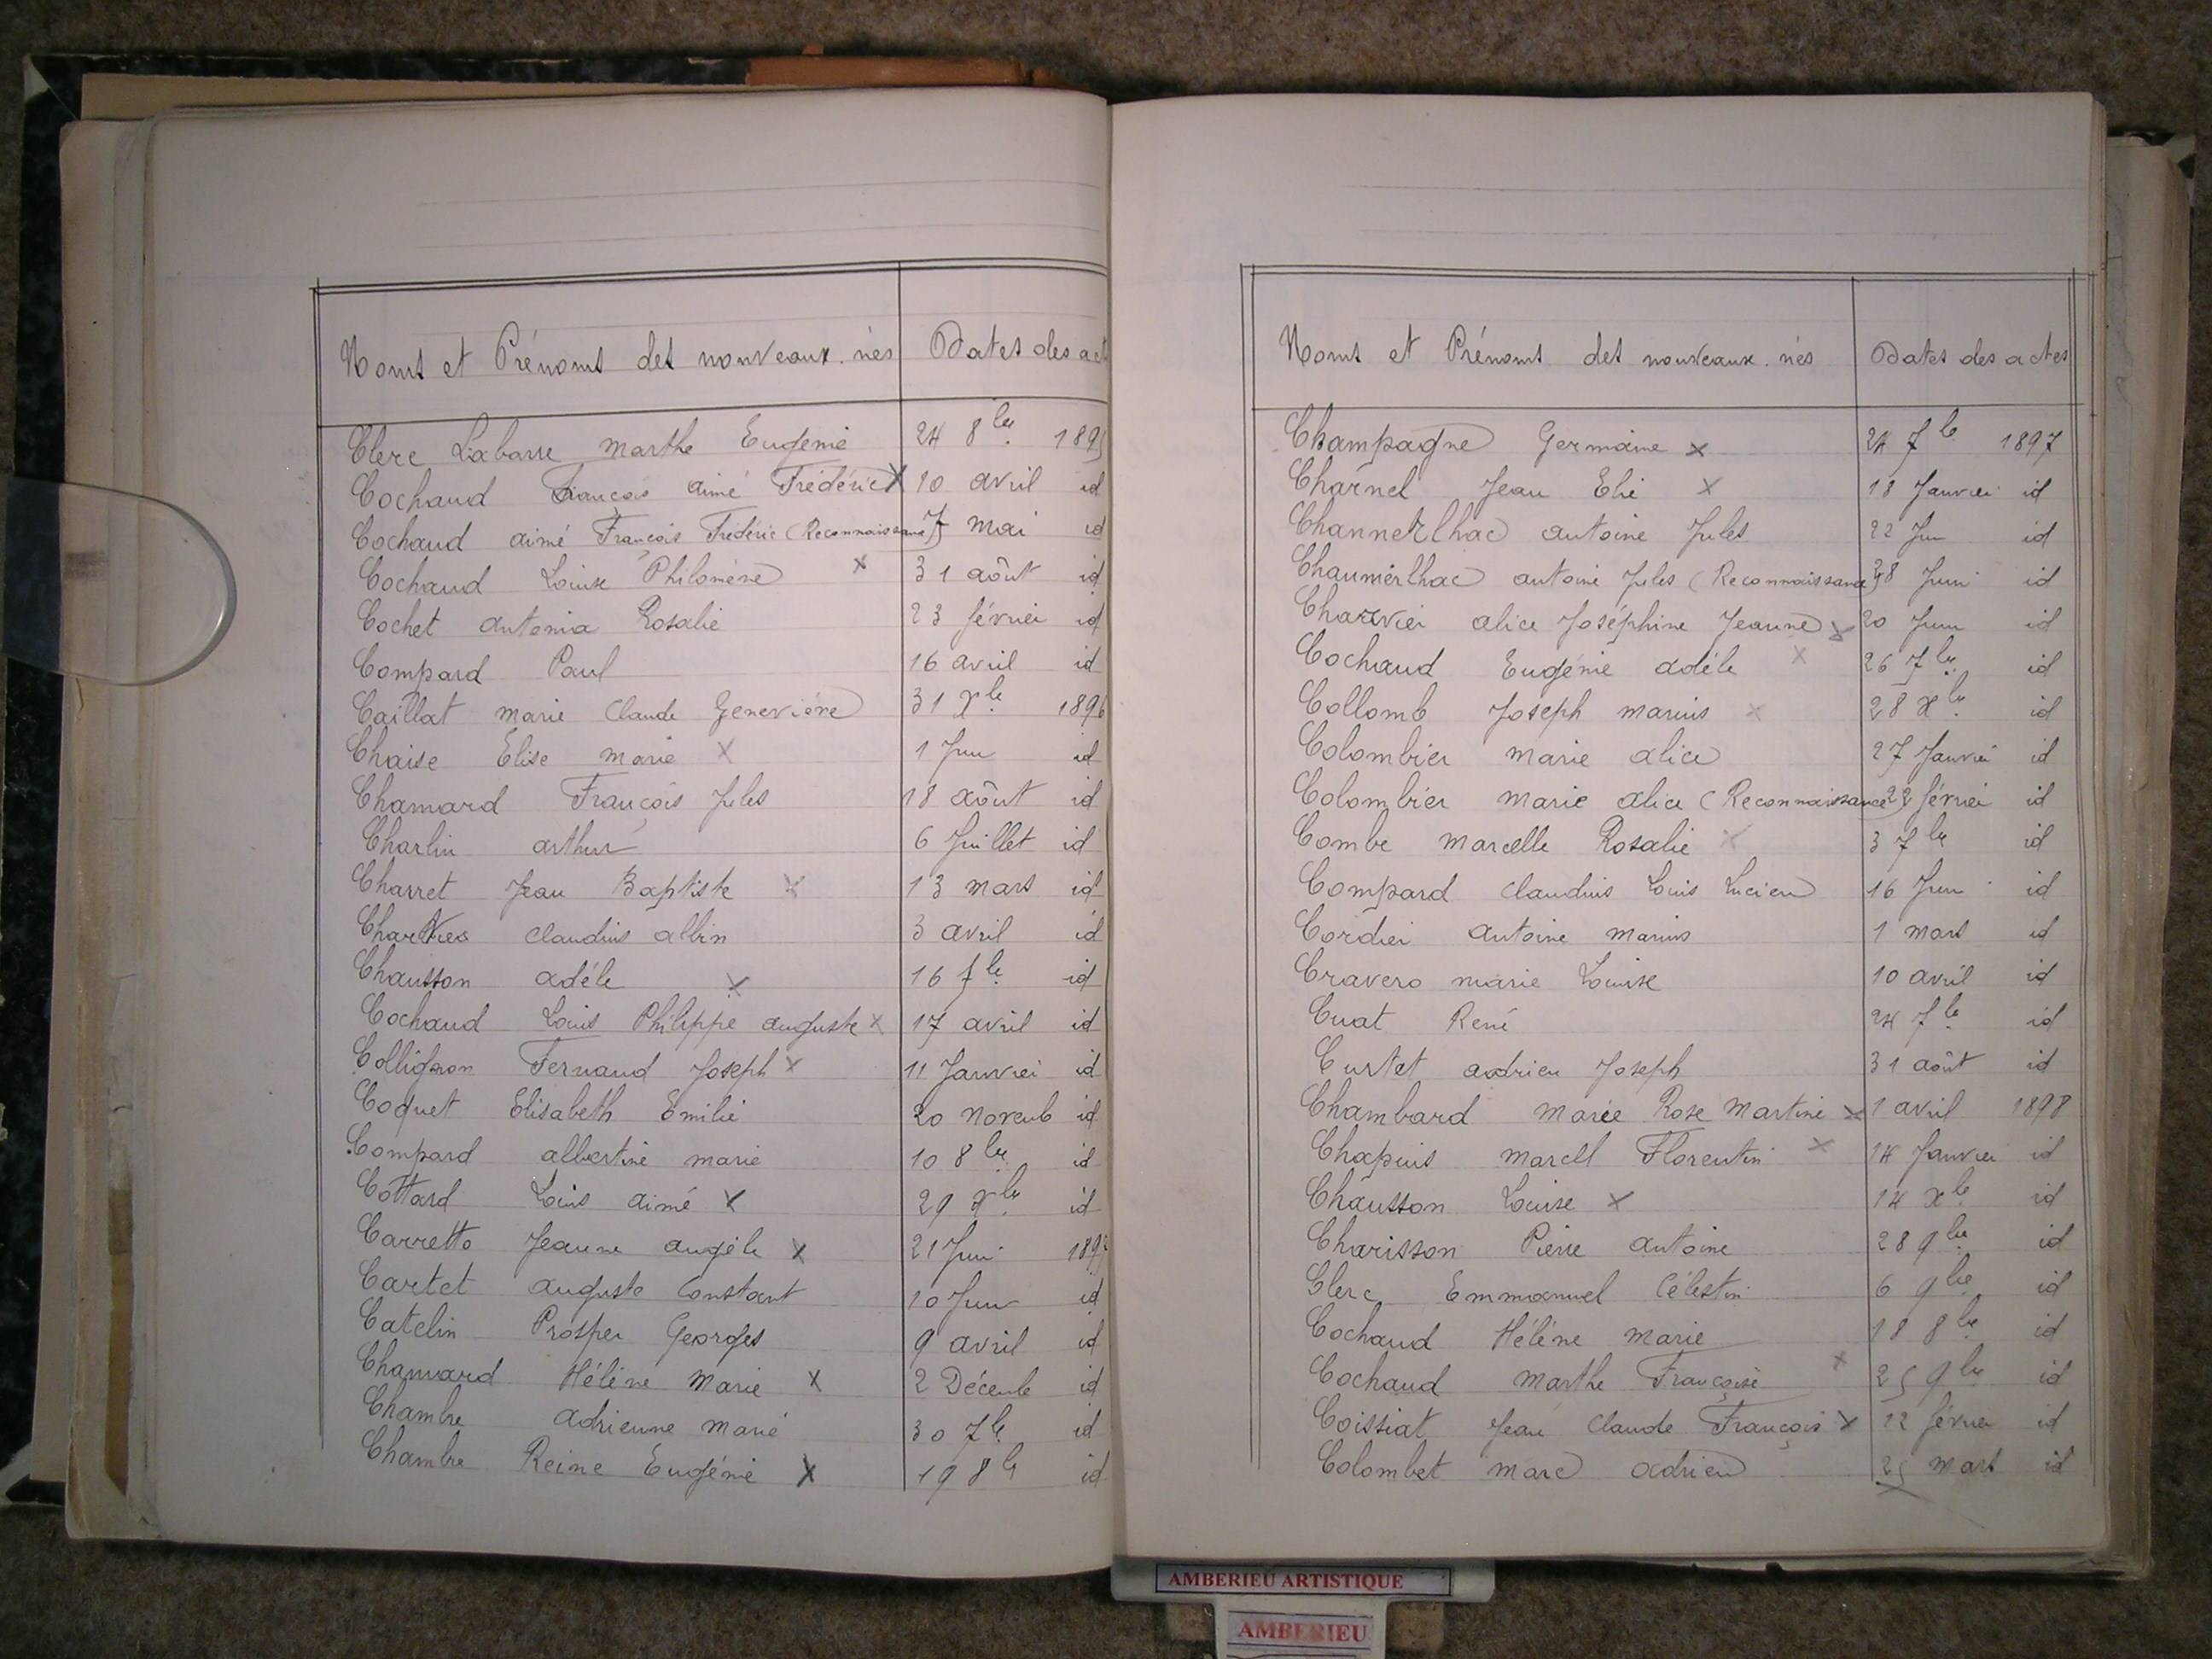 Noms et Prénoms des nouveaux. nés Dates des act
Clerc Labarre marthe Eugénie 24 8bre 1895
Cochaud François aimé Frédéric X 10 avril id
Cochaud aimé François Frédéric (Reconnaissance) 7 mai id
Cochaud Louise Philomène X 31 août id
Cochet antonia Rosalie 23 février id
Compard Paul 16 avril id
Caillat marie Claude Geneviève 31 Xbre 1896
Chaise Elise marie X 1 Juin id
Chamard François Jules 18 août id
Charlin arthur 6 Juillet id
Charret Jean Baptiste X 13 mars id
claudius albin 3 avril id
Chausson adèle X 16 7bre id
Cochaud Louis Philippe auguste X 17 avril id
Collignon Fernand Joseph X 11 Janvier id
Coquet Elisabeth Emilie 20 novemb id
Compard albertine marie 10 8bre id
Cottard Louis aimé X 29 Xbre id
Carretto Jeanne angèle X 21 Juin 1897
Cartet auguste Constant 10 Juin id
Catelin Prosper Georges 9 avril id
Chamard Hélène Marie X 2 Décemb id
Chambre adrienne marie 30 7bre id
Chambre Reine Eugénie X 19 8bre id
Noms et Prénoms des nouveaux. nés Dates des actes
Champagne Germaine X 24 7bre 1897
Charnel Jean Elie X 18 Janvier id
antoine Jules 22 Jun id
Chaumerlhac antoine Jules (Reconnaissance) 28 Juin id
Charvier alice Joséphine Jeanne X 20 Juin id
Cochaud Eugénie adèle X 26 7bre id
Collomb Joseph marius X 28 Xbre id
Colombier marie alice 27 Janvier id
Colombier marie alice (Reconnaissance) 22 février id
Combe marcelle Rosalie X 3 7bre id
Compard claudius Louis Lucien 16 Juin id
Cordier antoine marius 1 mars id
Cravero marie Louise 10 avril id
Cuat René 24 7bre id
Curtet adrien Joseph 31 août id
Chambard marie Rose Martine X 1 avril 1898
Chapuis marcel Florentin X 14 Janvier id
Chausson Louise X 14 Xbre id
Charisson Pierre antoine 28 9bre id
Clerc Emmanuel Célestin 6 9bre id
Cochaud Hélène marie 18 8bre id
Cochaud marthe Françoise X 25 9bre id
Coissiat Jean Claude François X 12 février id
Colombet marc adrien 25 mars id
AMBERIEU ARTISTIQUE
AMBERIEU